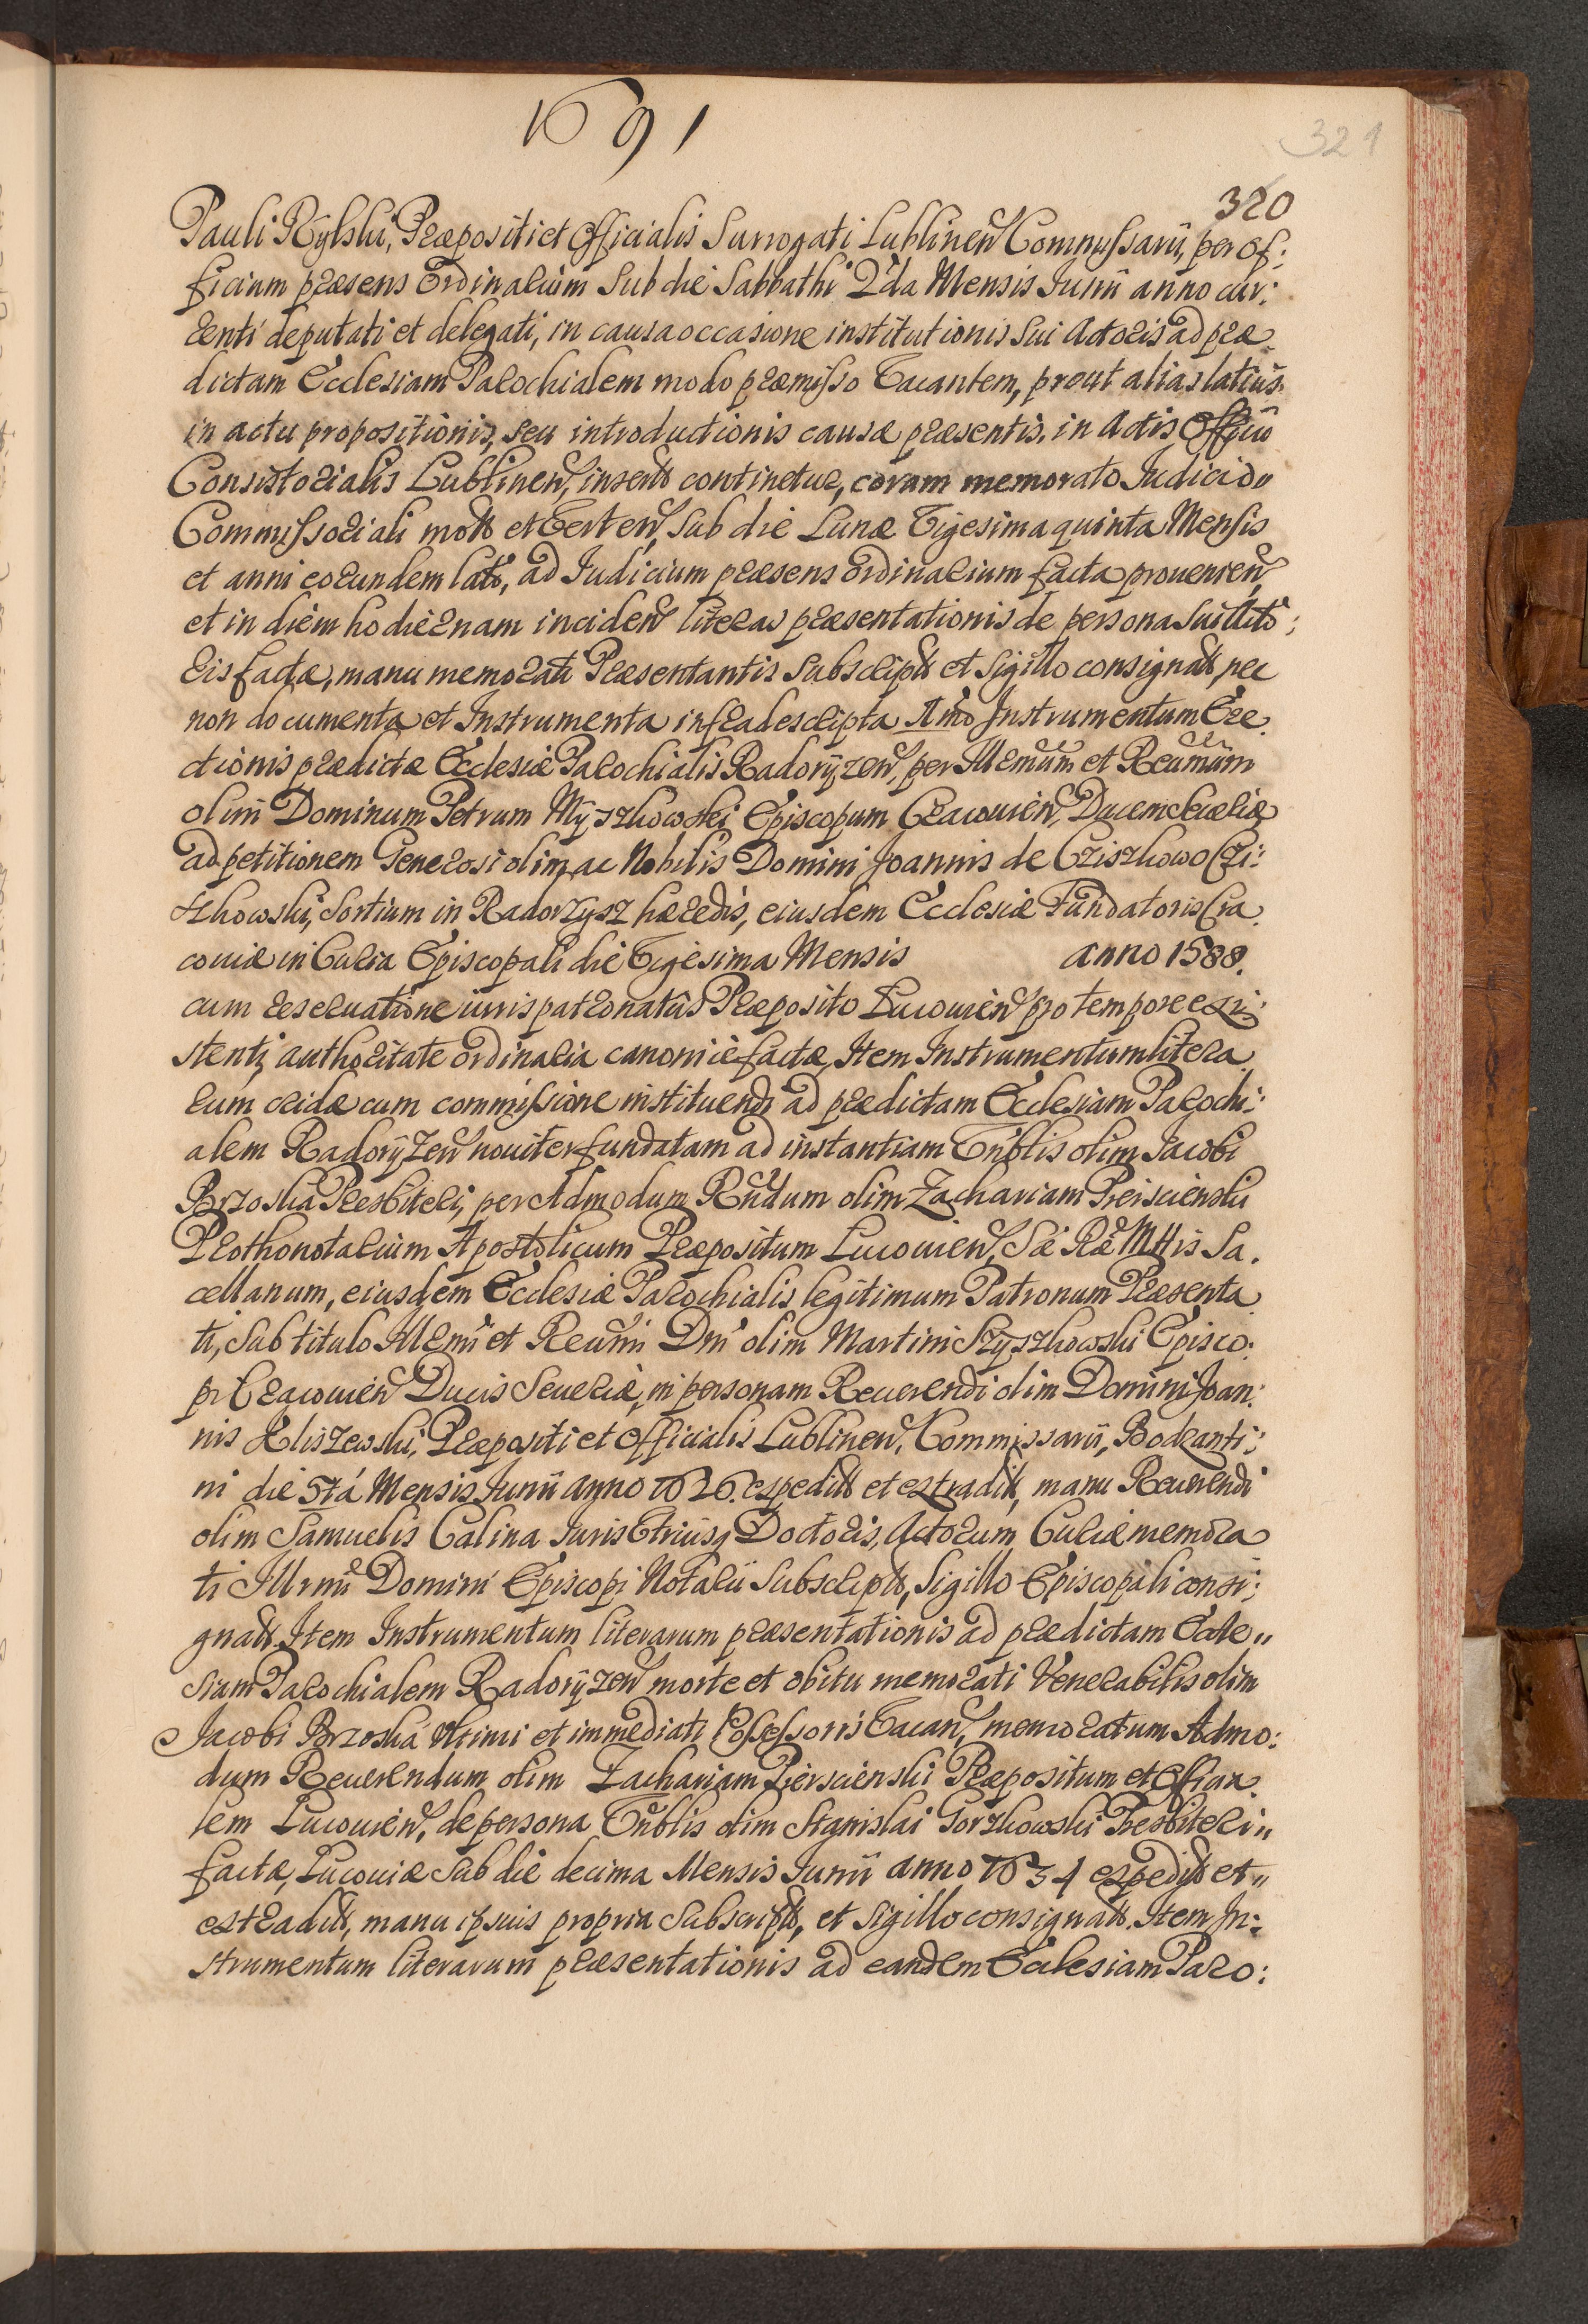 1691
321
320
Pauli Rylski, Præpositi et Officialis Surrogati Lublinen Commissarii, per of:
ficium præsens Ordinarium Sub die Sabbathi 2da Mensis Junii anno cur:
renti deputati et delegati, in causa occasione institutionis sui Actoris ad præ
dictam Ecclesiam Parochialem modo præmisso Vacantem, prout alias latius
in actu propositionis, seu introductionis causæ præsentis, in Actis Officii
Consistorialis Lublinen, insert continetur, coram memorato Judicio
Commissoriali mott et Verten, Sub die Lunæ Vigesima quinta Mensis
et anni eorundem lato, ad Judicium præsens Ordinarium facta provenien,
et in diem hodiernam inciden literas præsentationis de persona sui Acto:
ris factæ, manu memorati Præsentantis Subscript et Sigillo consignatt nec
non documenta et Instrumenta infradescripta Imo Instrumentum Ere
ctionis prædictæ Ecclesiæ Parochialis Radoryzen, per Illmum et Reumum
olim Dominum Petrum Myszkowski Episcopum Cracovien, Ducem Severiæ
ad petitionem Generosi olim ac Nobilis Domini Joannis de Cziszkowo Czi:
szkowski, Sortium in Radorzysz hæredis, eiusdem Ecclesiæ Fundatoris Cra
coviæ in Curia Episcopali die Vigesima Mensis anno 1588.
cum reservatione iuris patronatus Præposito Lucovien pro tempore exi:
stenti, authoritate ordinaria canonicè factæ, Item Instrumentum litera
rum cridæ cum commissione instituendi ad prædictam Ecclesiam Parochi:
alem Radoryzen noviter fundatam ad instantiam Vnblis olim Jacobi
Brzoska Presbiteri, per Admodum Rndum olim Zachariam Pierscienski
Prothonotarium Apostolicum Præpositum Lucovien, Sæ Ræ Mttis Sa.
cellanum, eiusdem Ecclesiæ Parochialis legitimum Patronum Præsenta
ti, Sub titulo Illmi et Reumi Dni olim Martini Szyszkowski Episco:
pi Cracovien Ducis Severiæ, in personam Reverendi olim Domini Joan:
nis Kliszewski, Præpositi et Officialis Lublinen, Commissarii, Bodzanti:
ni die 5tá Mensis Junii anno 1626. expeditt et extraditt, manu Reverendi
olim Samuelis Calina Juris Vtriusq Doctoris, Actorum Curiæ memora
ti Illrmi Domini Episcopi Notarii Subscript, Sigillo Episcopali consi:
gnatt. Item Instrumentum literarum præsentationis ad prædictam Eccle
siam Parochialem Radoryzen morte et obitu memorati Venerabilis olim
Jacobi Brzoska Vltimi et immediati Possessoris Vacan, memoratum Admo:
dum Reverendum olim Zachariam Pierscienski Præpositum et Officia
lem Lucovien, de persona Vnblis olim Stanislai Gorzkowski Presbiteri
factæ, Lucoviæ Sub die decima Mensis Junii anno 1634 expeditt et
extraditt, manu ipsius propria Subscript, et Sigillo consignatt. Item In:
strumentum literarum præsentationis ad eandem Ecclesiam Paro: